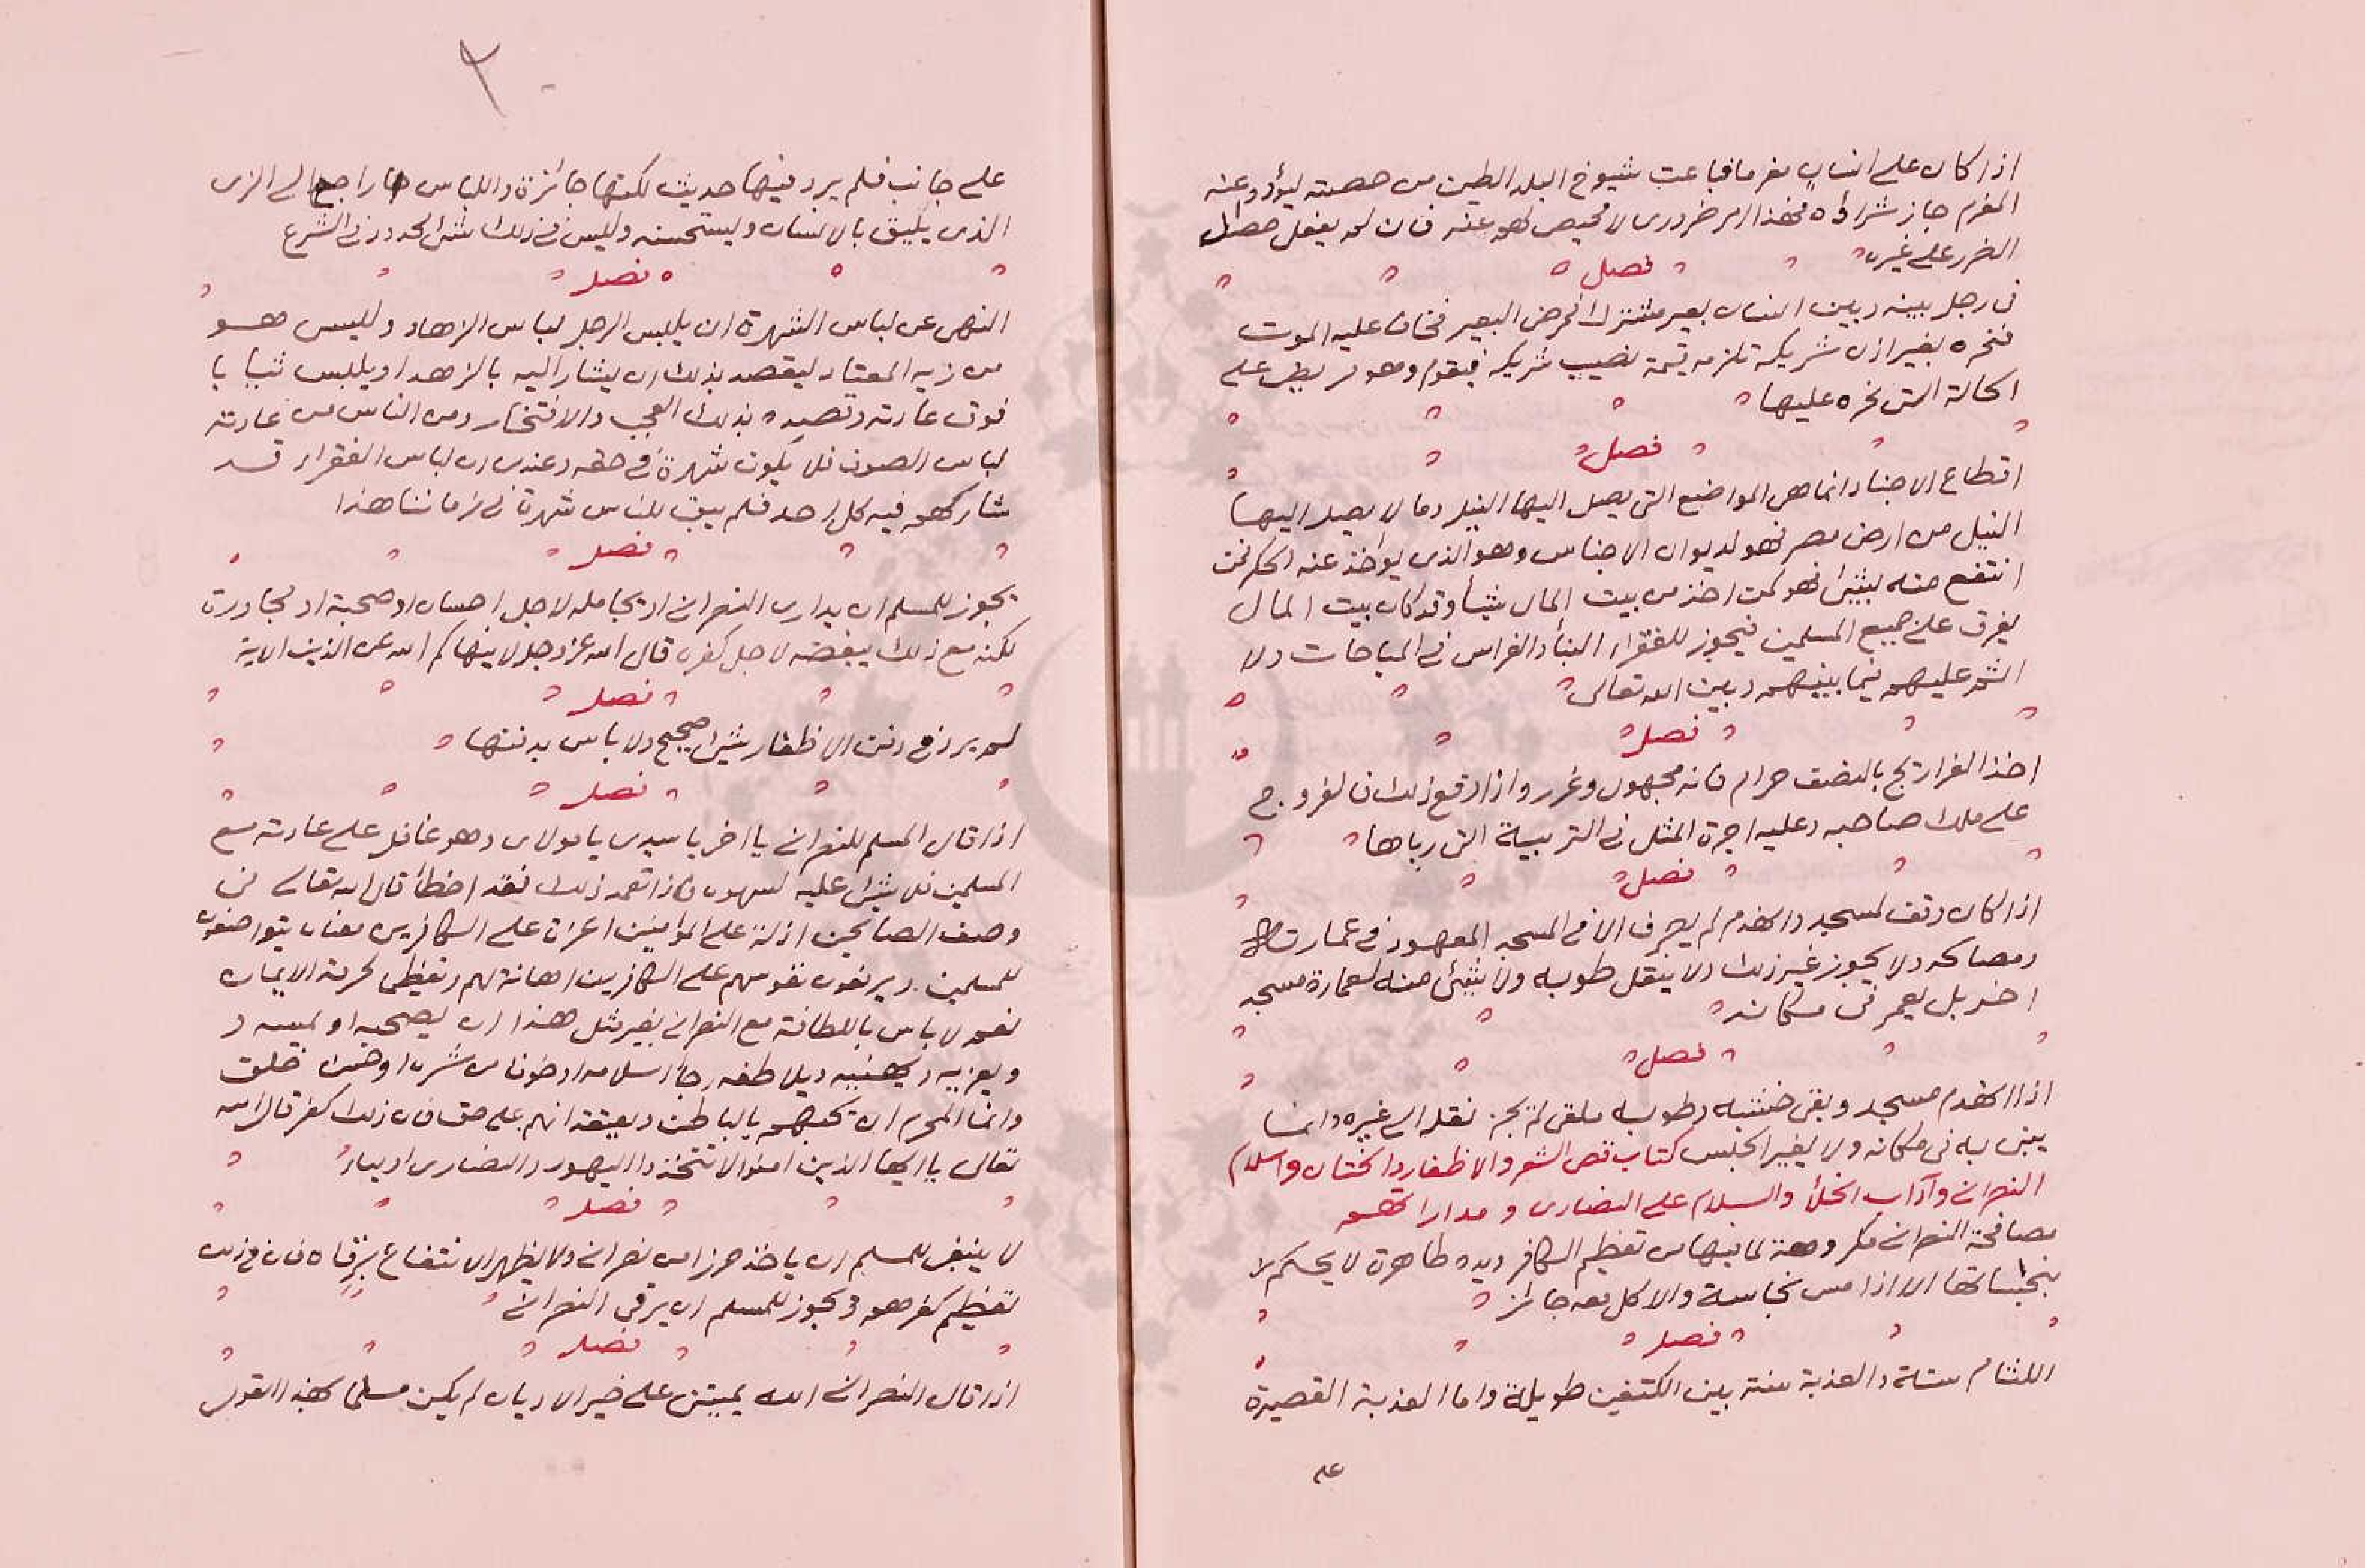 اذا كان على انسان مغرما فباعت شيوخ البلد الطين من حصته ليؤدوا عنه
المغرم جاز شراؤه فهذا امر ضروري لا محيص لهم عنه فان لم يفعل حصل
الضرر على غيره
فصل
في رجل بينه وبين انسان بعير مشترك فمرض البعير فخاف عليه الموت
فنحره بغير اذن شريكه تلزمه قيمة نصيب شريكه فيقوم وهو مريض على
الحالة التي نحره عليها
فصل
اقطاع الاجناد انما هي المواضع التي يصل اليها النيل وما لا يصل اليها
النيل من ارض مصر فهو لديوان الاجناس وهو الذي يؤاخذ عنه الحكر فمن
انتفع منه بشئ فهو كمن اخذ من بيت المال شيئا وقد كان بيت المال
يفرق على جميع المسلمين فيجوز للفقراء البناء والغراس في المباحات ولا
اثم عليهم فيما بينهم وبين الله تعالى
فصل
اخذ الفراريج بالنصف حرام فانه مجهول وغرر واذا وقع ذلك فالفروج
على ملك صاحبه وعليه اجرة المثل في التربية التي رباها
فصل
اذا كان وقف لمسجد وانهدم لم يصرف الا في المسجد المعهود في عمارته
ومصالحه ولا يجوز غير ذلك ولا ينقل طوبه ولا شئ منه لعمارة مسجد
اخر بل يعمر في مكانه
فصل
اذا انهدم مسجد وبقي خشبه وطوبه ملقى لم يجز نقله الى غيره وانما
يبنى به في مكانه ولا يغير الحبس كتاب قص الشعر والاظفار والختان واسلام
النصراني وآداب الخلأ والسلام على النصارى ومداراتهم
مصافحة النصراني مكروهة لما فيها من تعظيم الكافر ويده طاهرة لا يحكم لا
بنجاستها الا اذا مس نجاسة والاكل معه جائز
فصل
اللثام سنة والعذبة سنة بين الكتفين طويلة واما العذبة القصيرة
على
٢٠
على جانب فلم يرد فيها حديث لكنها جائزة واللباس راجع الى الزي
الذي يليق بالانسان ويستحسنه وليس في ذلك شئ محدود في الشرع
فصل
النهي عن لباس الشهرة ان يلبس الرجل لباس الزهاد وليس هو
من زيه المعتاد ليقصد بذلك ان يشار اليه بالزهد او يلبس ثيابا
فوق عادته وقصده بذلك العجب والافتخار ومن الناس من عادته
لباس الصوف فلا يكون شهرة في حقه وعندي ان لباس الفقراء قد
شاركهم فيه كل احد فلم يبق للناس شهرة في زماننا هذا
فصل
يجوز للمسلم ان يداري النصراني او يجامله لاجل احسان او صحبة او مجاورة
لكنه مع ذلك يبغضه لاجل كفره قال الله عز وجل لا ينهاكم الله عن الذين الاية
فصل
لم يرد في دفن الاظفار شئ صحيح ولا باس بدفنها
فصل
اذا قال المسلم للنصراني يا اخي يا سيدي يا مولاي وهو غافل على عادته مع
المسلمين فلا شئ عليه لسهوه فاذا تعمد ذلك فقد اخطأ قال الله تعالى في
وصف الصالحين اذلة على المؤمنين اعزة على الكافرين معناه يتواضعون
للمسلمين ويرفعون نفوسهم على الكافرين اهانة لهم وتعظيما لحرمة الايمان
نعم لا باس باللطافة مع النصراني بغير مثل هذا ان يصحبه او
ويعزيه ويهنيه ويلاطفه رجاء اسلامه او خوفا من شره او حسن خلق
وانما المحرم ان تحبهم بالباطن ويعتقد انهم على حق فان ذلك كفر قال الله
تعالى يا ايها الذين امنوا لا تتخذوا اليهود والنصارى اولياء
فصل
لا ينبغي للمسلم ان ياخذ حرزا من نصراني ولا يظهر الانتفاع برقاه فان في ذلك
تعظيم كفرهم ويجوز للمسلم ان يرقي النصراني
فصل
اذا قال النصراني الله يميتني على خير الاديان لم يكن مسلما بهذا القول